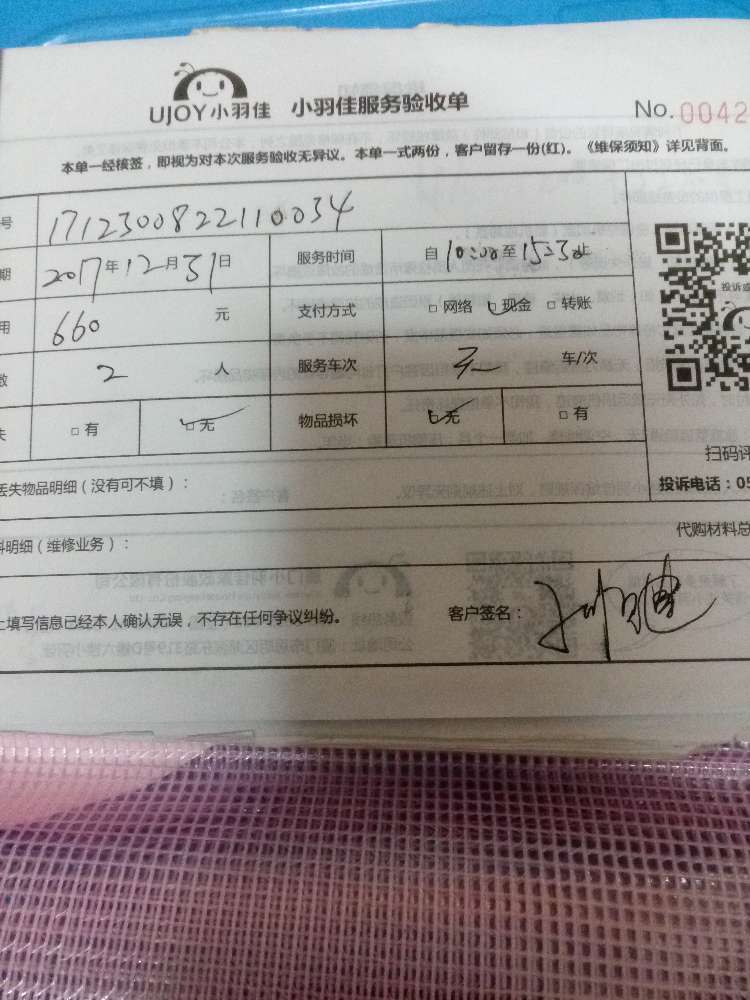 UJOY小羽佳 小羽佳服务验收单
No.0042
本单一经核签，即视为对本次服务验收无异议。本单一式两份，客户留存一份(红)。《维保须知》详见背面。
号 1712300822110034
期 2017年12月31日 服务时间 自10:00至15:30止
用 660 元 支付方式 □网络 ☑现金 □转账
数 2 人 服务车次 车/次
失 □有 ☑无 物品损坏 ☑无 □有
投诉或
扫码评
投诉电话：05
丢失物品明细（没有可不填）：
料明细（维修业务）： 代购材料总
上填写信息已经本人确认无误，不存在任何争议纠纷。 客户签名：